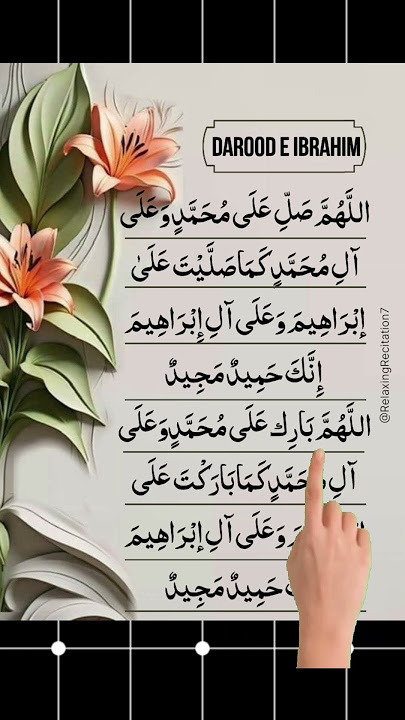 DAROOD E IBRAHIM
اللَّهُمَّ صَلِّ عَلَى مُحَمَّدٍ وَعَلَى
آلِ مُحَمَّدٍ كَمَا صَلَّيْتَ عَلَىٰ
إِبْرَاهِيمَ وَعَلَى آلِ إِبْرَاهِيمَ
إِنَّكَ حَمِيدٌ مَجِيدٌ
اللَّهُمَّ بَارِك عَلَى مُحَمَّدٍ وَعَلَى
آلِ مُحَمَّدٍ كَمَا بَارَكْتَ عَلَى
وَعَلَى آلِ إِبْرَاهِيمَ
حَمِيدٌ مَجِيدٌ
@RelaxingRecitation7